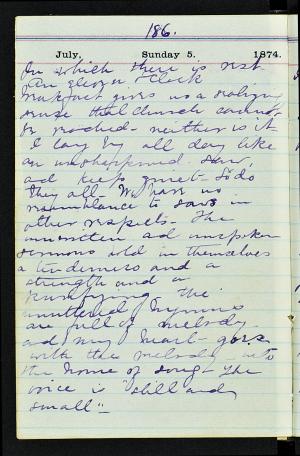 186.
July, Sunday 5. 1874.
On which there is rest
An eleven o'clock
breakfast gives us a realizing
sense that church cannot
be reached - neither is it
I lay by all day like
an unsharpened saw,
and keep quiet - So do
they all - We have no
resemblance to saws in
other respects - The
unwritten and unspoken
sermons hold in themselves
a tenderness and a
strength and a
The
unuttered hymns
are full of melody
and my heart goes
with the melody into
the home of song - The
voice is "still and
small" -